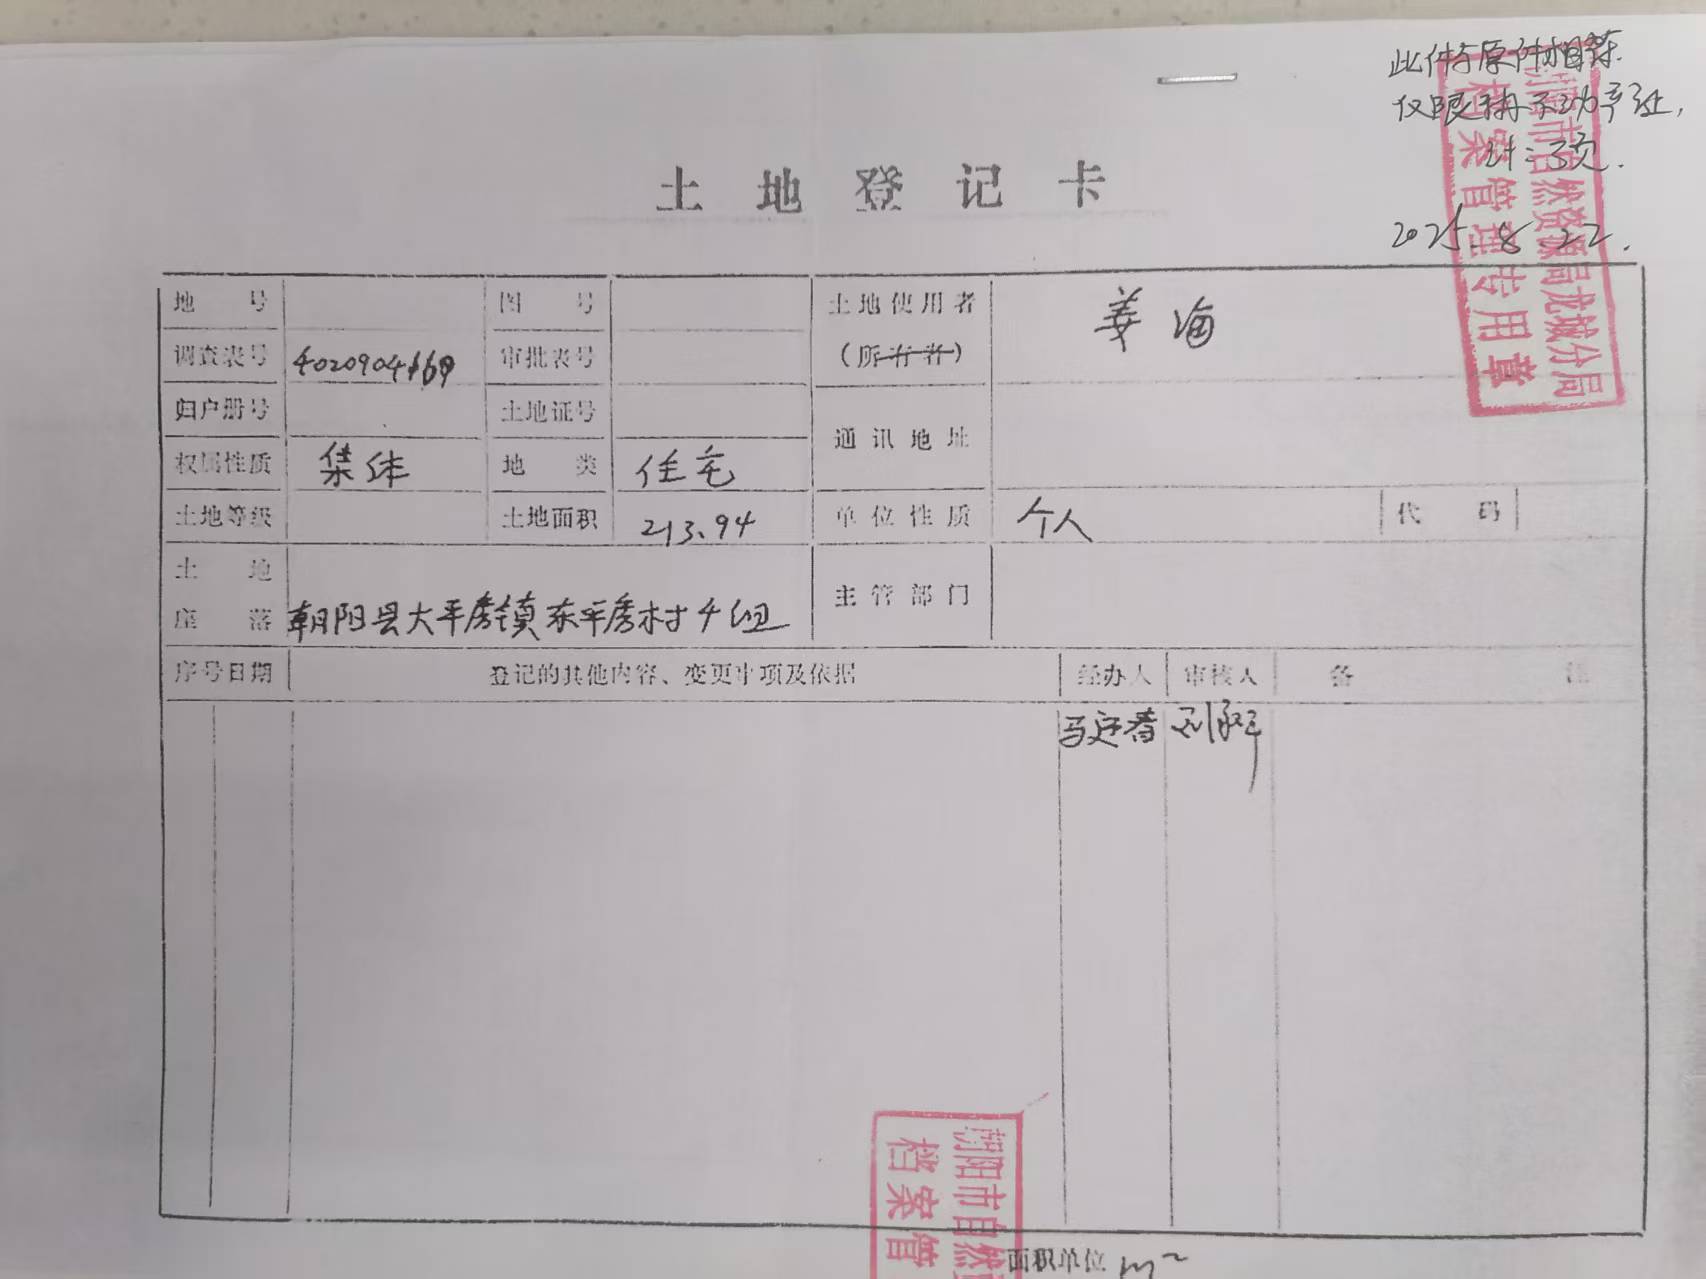 此件与原件相符.
仅限
计:3页.
2025.8.22.
朝阳市自然资源局龙城分局
档案管理专用章
土地登记卡
地号 图号 土地使用者 姜海
调查表号 4020904169 审批表号 (所有者)
归户册号 土地证号 通讯地址
权属性质 集体 地类 住宅
土地等级 土地面积 213.94 单位性质 个人 代码
土地座落 朝阳县大平房镇东平房村4组 主管部门
序号日期 登记的其他内容、变更事项及依据 经办人 审核人 备注
马廷春
朝阳市自然
档案管
面积单位 m²